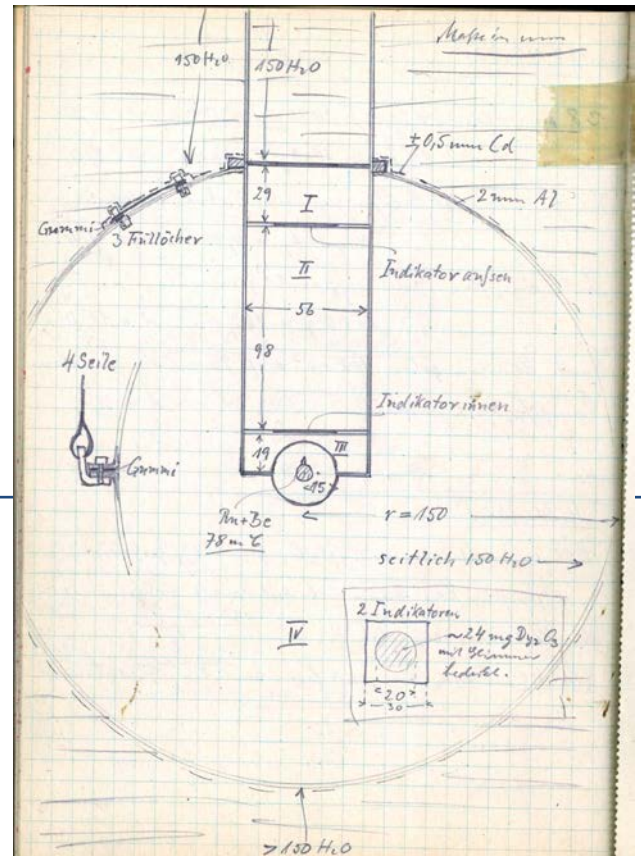 Maße in mm
150 H₂O
150 H₂O
±0,5 mm Cd
2 mm Al
29
I
Gummi
3 Füllöcher
II
Indikator aussen
56
98
4 Seile
Indikator innen
19
III
Gummi
15
Rn+Be
r = 150
78 mC
seitlich 150 H₂O
2 Indikatoren
IV
~24 mg Dy₂O₃
mit Glimmer
bedeckt.
20
30
>150 H₂O